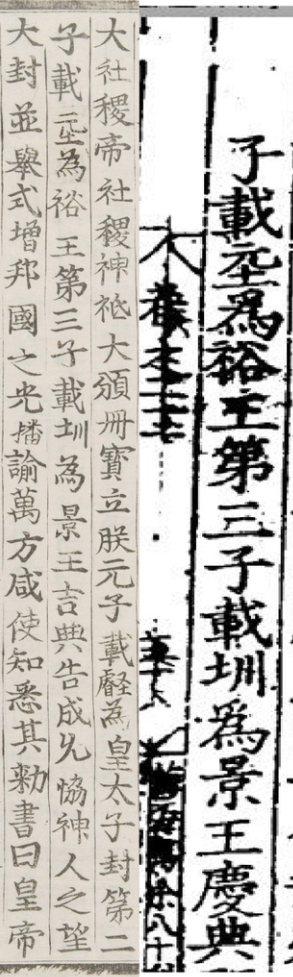 子載坖爲裕王第三子載圳爲景王慶典
大社稷帝社稷神祗大頒冊寶立朕元子載壡為皇太子封第二
子載坖為裕王第三子載圳為景王吉典告成允協神人之望
大封並舉式增邦國之光播諭萬方咸使知悉其勅書曰皇帝